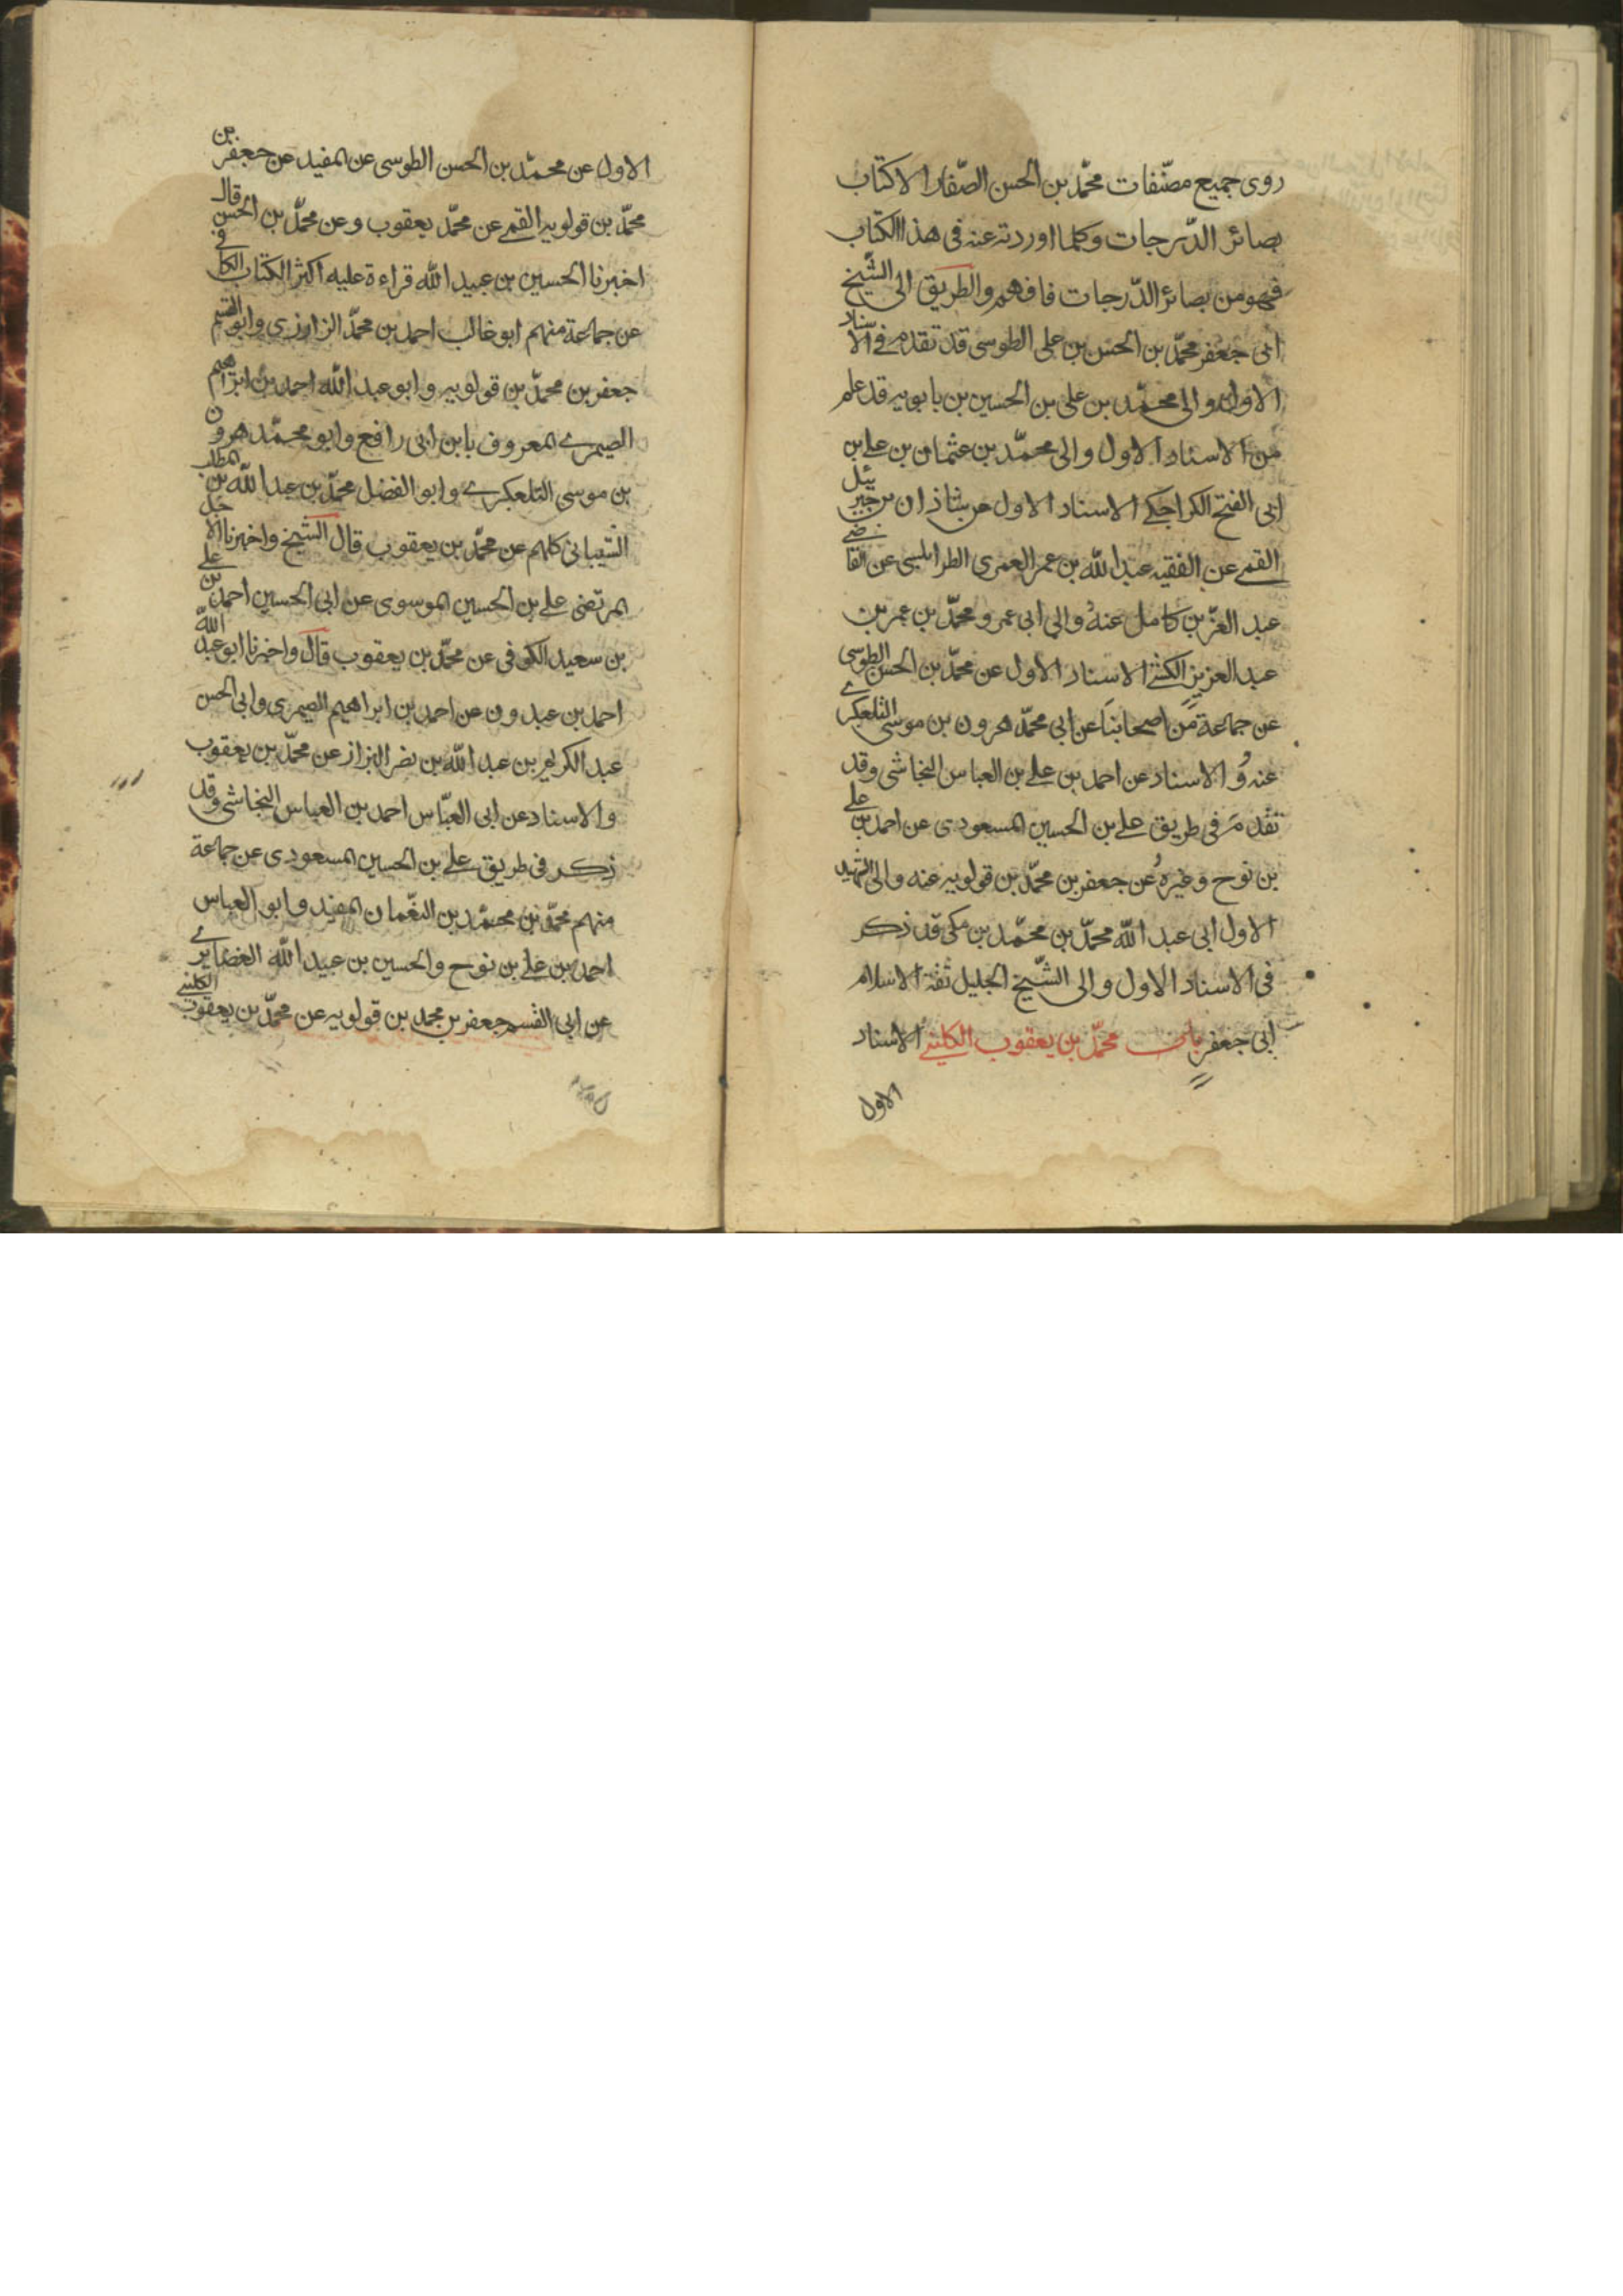 روى جميع مصنّفات محمّد بن الحسن الصّفار الا كتاب
بصائر الدّرجات وكلما اوردته عنه فى هذا الكتاب
فهو من بصائر الدّرجات فافهم والطريق الى الشّيخ
ابى جعفر محمّد بن الحسن بن على الطوسى قد تقدم فى الاسناد
الاول والى محمّد بن على بن الحسين بن بابويه قد علم
من الاسناد الاول والى محمّد بن عثمان بن على بن
ابى الفتح الكراجكى الاسناد الاول عن شاذان بن جبرئيل
القمى عن الفقيه عبد الله بن عمر العمرى الطرابلسى عن القاضى
عبد العزيز بن كامل عنه والى ابى عمرو محمّد بن عمر بن
عبد العزيز الكشى الاسناد الاول عن محمّد بن الحسن الطوسى
عن جماعة من اصحابنا عن ابى محمّد هرون بن موسى التلعكبرى
عنه و الاسناد عن احمد بن على بن العباس النجاشى وقد
تقدم فى طريق على بن الحسين المسعودى عن احمد بن على
بن نوح وغيره عن جعفر بن محمّد بن قولويه عنه والى الشهيد
الاول ابى عبد الله محمّد بن محمّد بن مكى قد ذكر
فى الاسناد الاول والى الشّيخ الجليل ثقة الاسلام
ابى جعفر محمّد بن يعقوب الكلينى الاسناد
الاول
الاول عن محمّد بن الحسن الطوسى عن المفيد عن جعفر بن
محمّد بن قولويه القمى عن محمّد يعقوب وعن محمّد بن الحسن قال
اخبرنا الحسين بن عبيد الله قراءة عليه اكثر الكتاب الكافى
عن جماعة منهم ابو غالب احمد بن محمّد الزرارى وابو القسم
جعفر بن محمّد بن قولويه وابو عبد الله احمد بن ابراهيم
الصيمرى المعروف بابن ابى رافع وابو محمّد هرون
بن موسى التلعكبرى وابو الفضل محمّد بن عبد الله بن المطلب
الشيبانى كلهم عن محمّد بن يعقوب قال الشيخ واخبرنا الاجل
المرتضى على بن الحسين الموسوى عن ابى الحسين احمد بن على
بن سعيد الكوفى عن محمّد بن يعقوب قال واخبرنا ابو عبد الله
احمد بن عبدون عن احمد بن ابراهيم الصيمرى وابى الحسن
عبد الكريم بن عبد الله بن نصر البزاز عن محمّد بن يعقوب
والاسناد عن ابى العبّاس احمد بن العباس النجاشى وقد
ذكر فى طريق على بن الحسين المسعودى عن جماعة
منهم محمّد بن محمّد بن النعمان المفيد وابو العباس
احمد بن على بن نوح والحسين بن عبيد الله الغضايرى
عن ابى القسم جعفر بن محمد بن قولويه عن محمّد بن يعقوب الكلينى